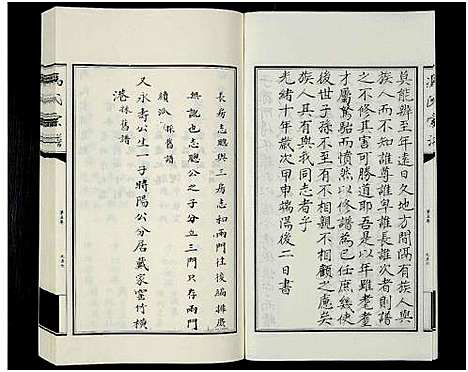 莫能辦至年遠日久地方間隔有族人與
族人而不知誰尊誰卑誰長誰次者則譜
之不修其害可勝道耶吾是以年雖耄耋
才屬駑駘而憤然以修譜為己任庶幾使
後世子孫不至有相視不相顧之慮矣
族人其有與我同志者乎
光緒十年歲次甲申端陽後二日書
長房志聰與三房志和兩門後編排廣
無說也志聰公之子分立三門只存兩門
續派 採舊譜
又永壽公生一子時陽公分居戴家窰竹横
港 採舊譜
馮氏宗譜